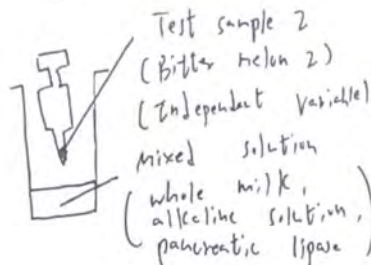 Test sample 2
(Bitter melon 2)
(Independent variable)
mixed solution
(whole milk,
alkaline solution,
pancreatic lipase)